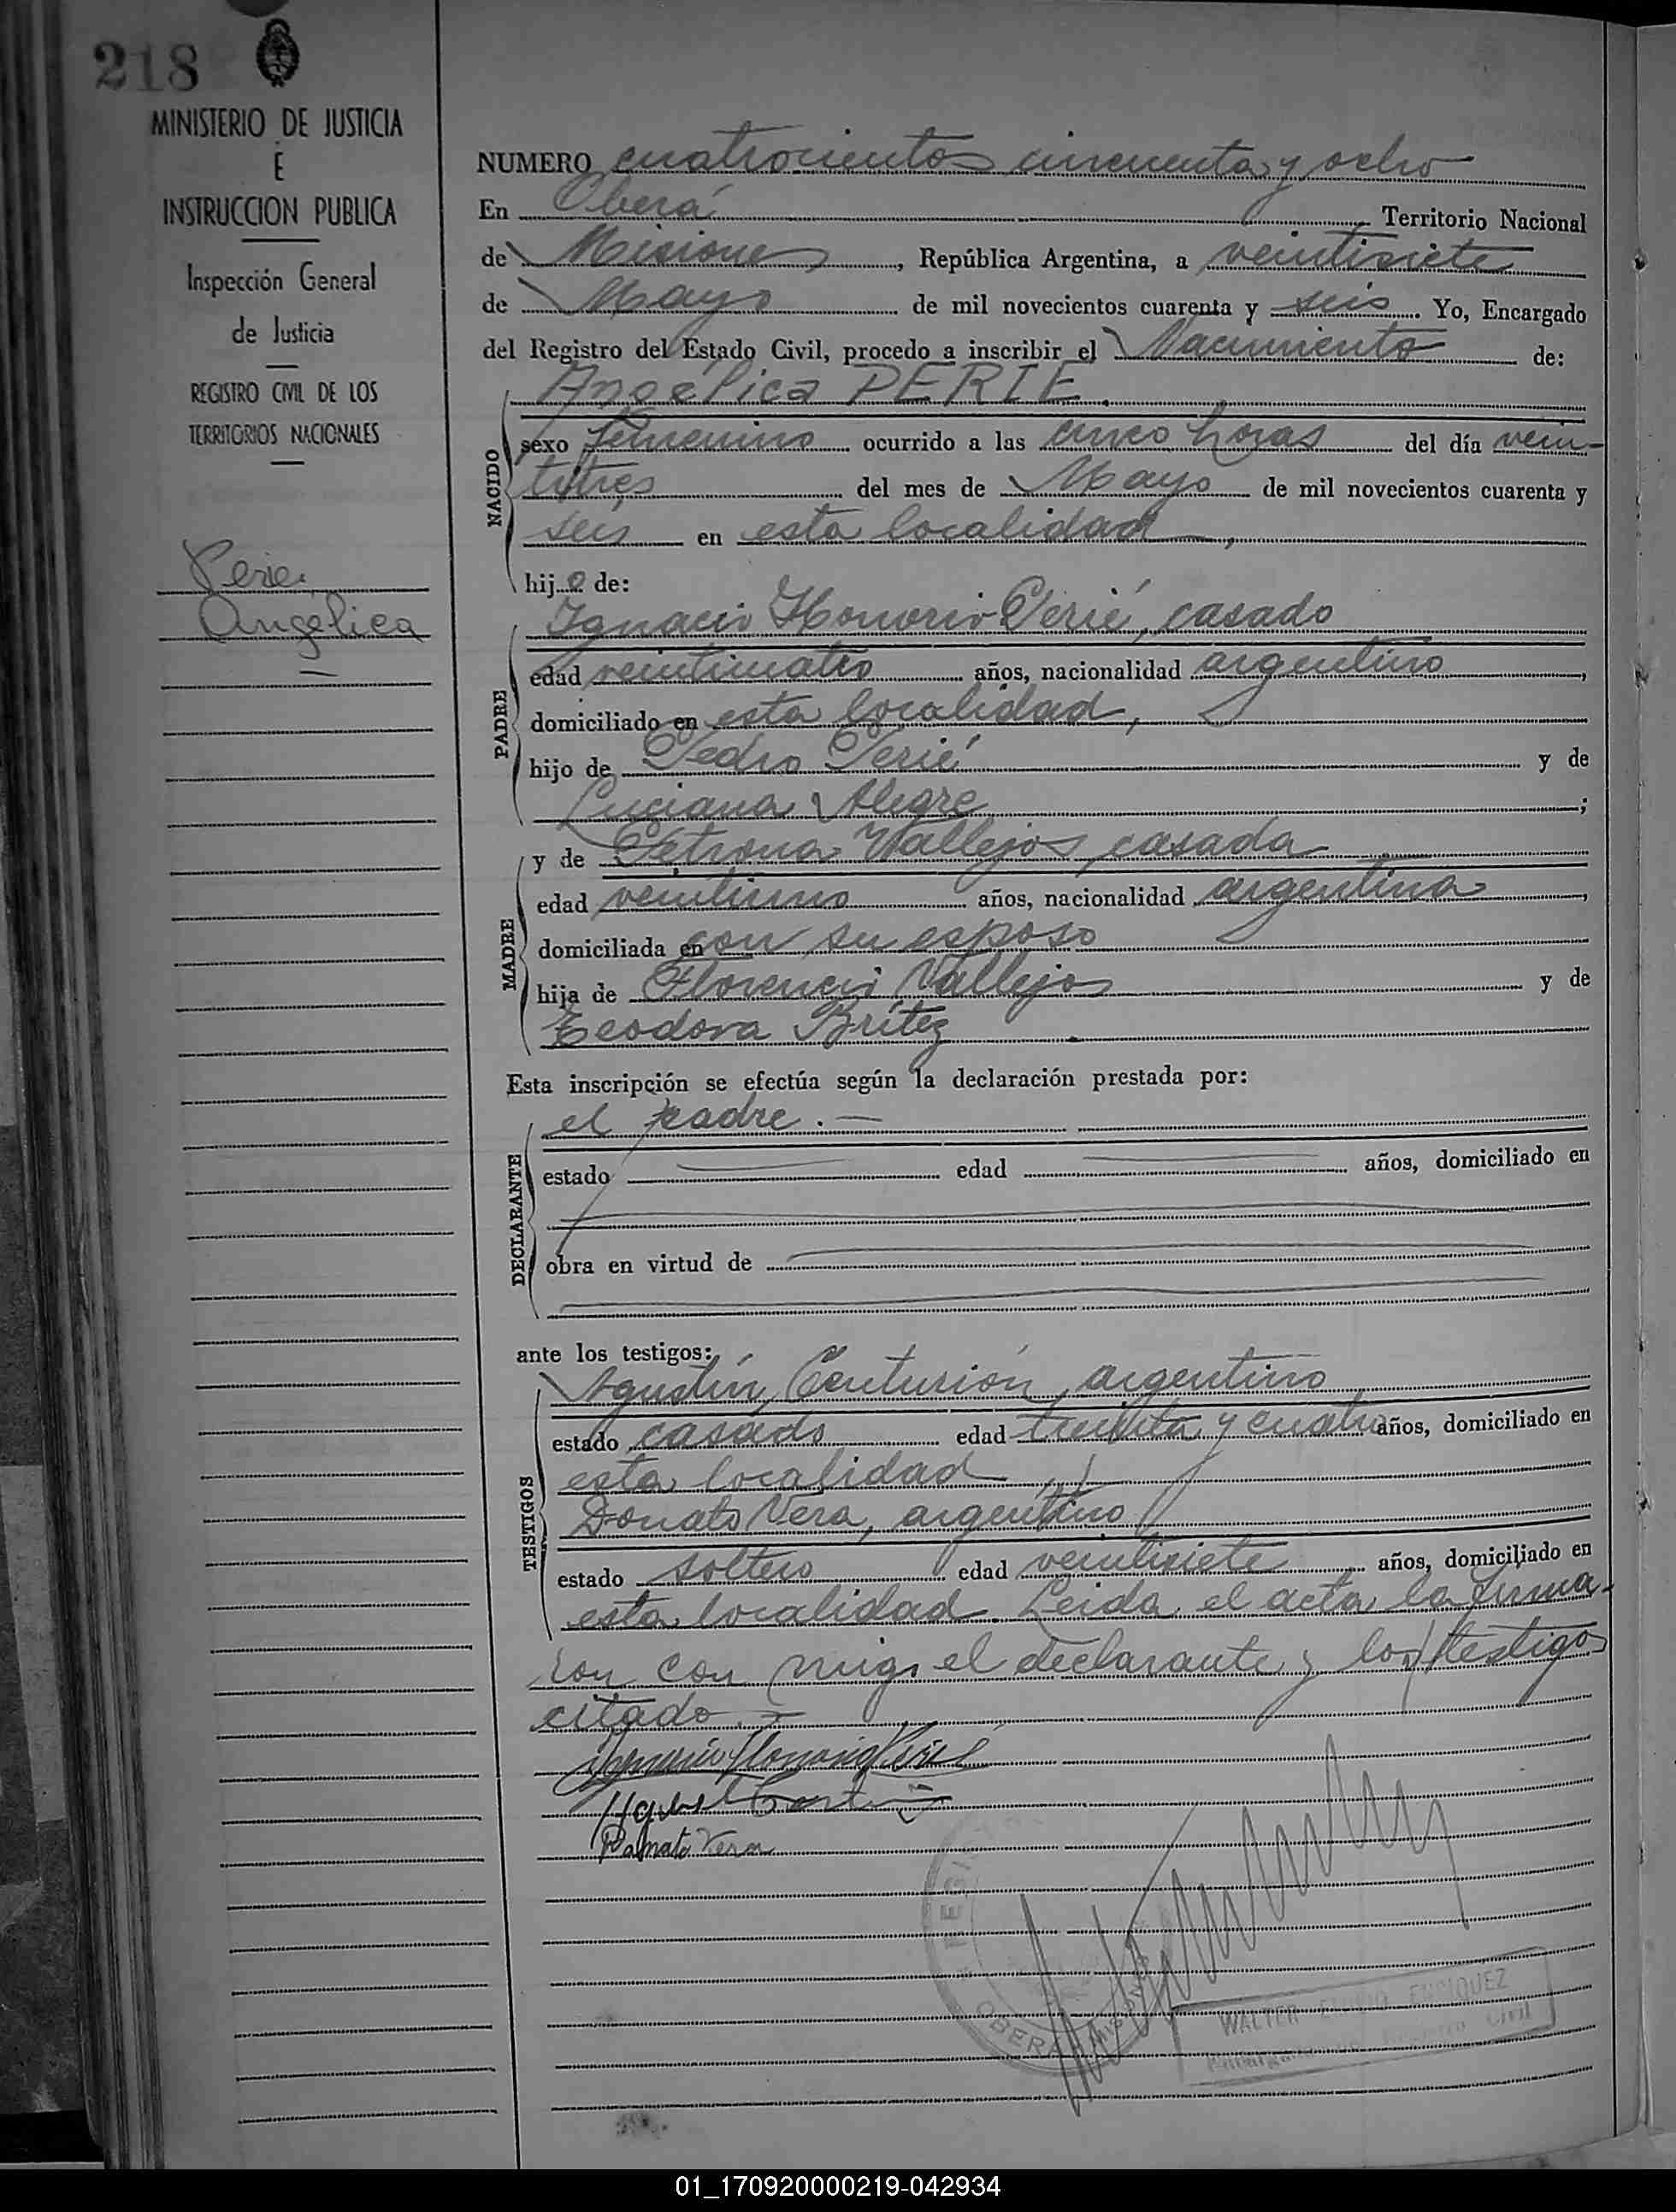 218
MINISTERIO DE JUSTICIA
E
INSTRUCCION PUBLICA
Inspección General
de Justicia
REGISTRO CIVIL DE LOS
TERRITORIOS NACIONALES
Perié
Angélica
NUMERO cuatrocientos cincuenta y ocho
En Oberá Territorio Nacional
de Misiones, República Argentina, a veintisiete
de Mayo de mil novecientos cuarenta y seis. Yo, Encargado
del Registro del Estado Civil, procedo a inscribir el Nacimiento de:
Angélica PERIE.
NACIDO
sexo femenino ocurrido a las cinco horas del día vein-
titres del mes de Mayo de mil novecientos cuarenta y
seis en esta localidad,
hija de:
PADRE
Ignacio Honorio Perié, casado
edad veinticuatro años, nacionalidad argentino,
domiciliado en esta localidad,
hijo de Pedro Perié y de
Luciana Alegre;
MADRE
y de Petrona Vallejos, casada
edad veintiuno años, nacionalidad argentina,
domiciliada en con su esposo
hija de Florencio Vallejos y de
Teodora Brítez.
Esta inscripción se efectúa según la declaración prestada por:
DECLARANTE
el padre.—
estado edad años, domiciliado en
obra en virtud de
ante los testigos:
TESTIGOS
Agustín Centurión, argentino
estado casado edad treinta y cuatro años, domiciliado en
esta localidad
Donato Vera, argentino
estado soltero edad veintisiete años, domiciliado en
esta localidad. Leida el acta la firma-
ron con migo el declarante y los testigos
citado.=
Ignacio Honorio Perié
Donato Vera
OBERÁ MISIONES
WALTER ENRIQUEZ
Registro Civil
01_170920000219-042934